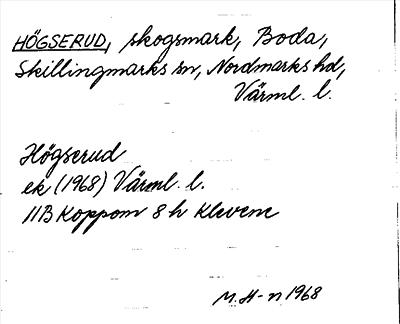 HÖGSERUD, skogsmark, Boda,
Skillingmarks sn, Nordmarks hd,
Värml. l.
Högserud
ek (1968) Värml. l.
11B Koppom 8 h Klevene
M. H-n 1968